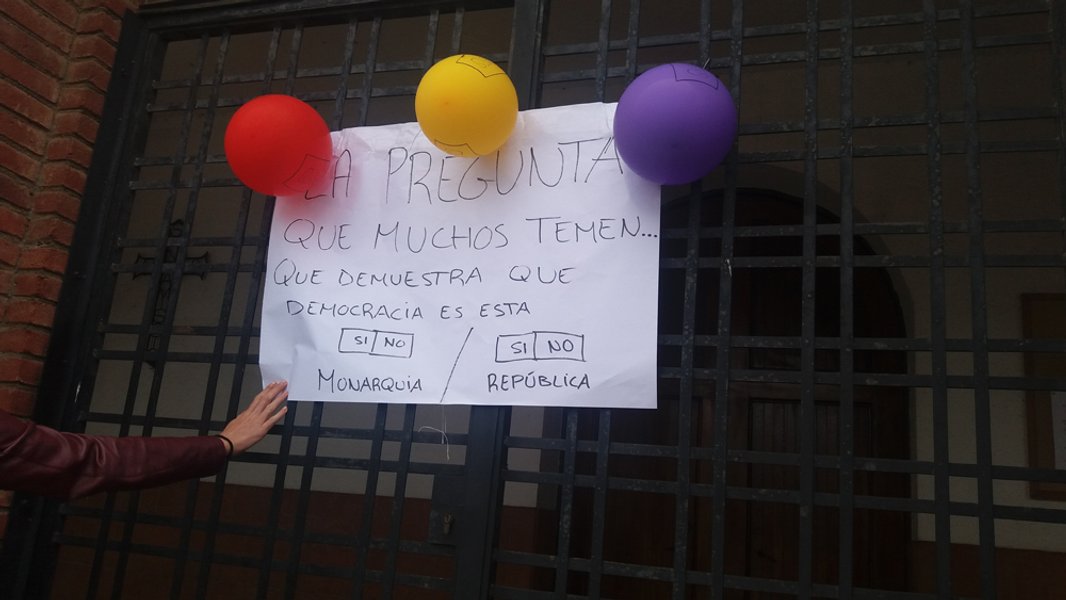 LA PREGUNTA
QUE MUCHOS TEMEN...
QUE DEMUESTRA QUE
DEMOCRACIA ES ESTA
SI NO / SI NO
MONARQUIA / REPÚBLICA